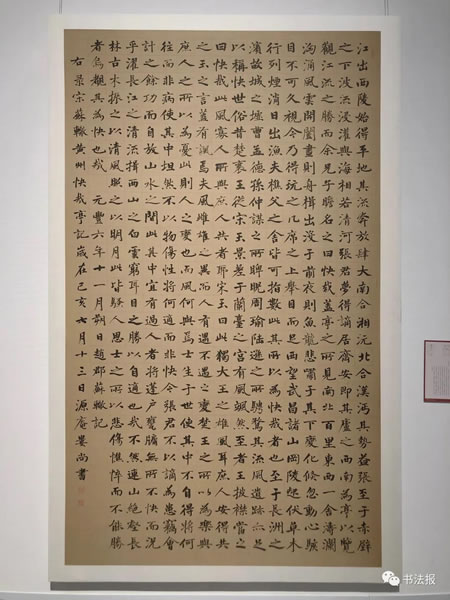 江出西陵始得平地其流奔放肆大南合湘沅北合漢沔其勢益張至于赤壁
之下波流浸灌與海相若清河張君夢得謫居齊安即其廬之西南為亭以覽
觀江流之勝而余兄子瞻名之曰快哉蓋亭之所見南北百里東西一舍濤瀾
洶湧風雲開闔晝則舟楫出沒于前夜則魚龍悲嘯于其下變化倏忽動心駭
目不可久視今乃得玩之几席之上舉目而足西望武昌諸山岡陵起伏草木
行列煙消日出漁夫樵父之舍皆可指數此其所以為快哉者也至于長洲之
濱故城之墟曹孟德孫仲謀之所睥睨周瑜陸遜之所騁騖其流風遺跡亦足
以稱快世俗昔楚襄王從宋玉景差于蘭臺之宮有風颯然至者王披襟當之
曰快哉此風寡人所與庶人共者耶宋玉曰此獨大王之雄風耳庶人安得共
之玉之言蓋有諷焉夫風雌雄之異而人有遇不遇之變楚王之所以為樂與
庶人之所以為憂此則人之變也而風何與焉士生于世使其中不自得將何
往而非病使其中坦然不以物傷性將何適而非快今張君不以謫為患竊會
計之餘功而自放山水之間此其中宜有過人者將蓬戶甕牖無所不快而況
乎濯長江之清流揖西山之白雲窮耳目之勝以自適也哉不然連山絕壑長
林古木振之以清風照之以明月此皆騷人思士之所以悲傷憔悴而不能勝
者烏覩其為快也哉 元豐六年十一月朔日趙郡蘇轍記
右录宋蘇轍黃州快哉亭記歲在己亥六月十三日源庵晏尚書
书法报